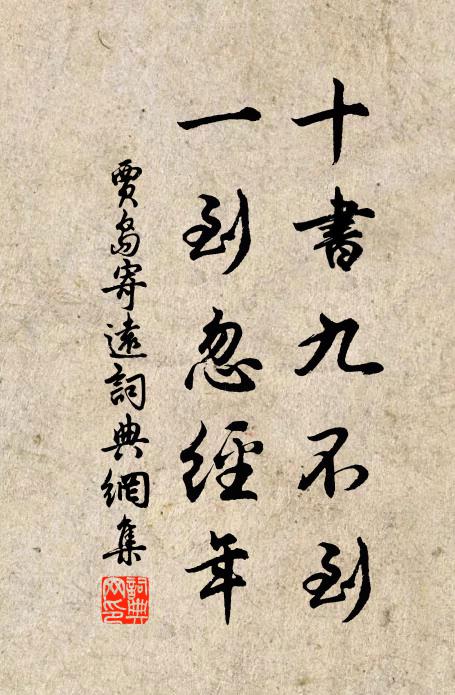 十書九不到
一到忽經年
賈島寄遠詞典網集
詞典
网印